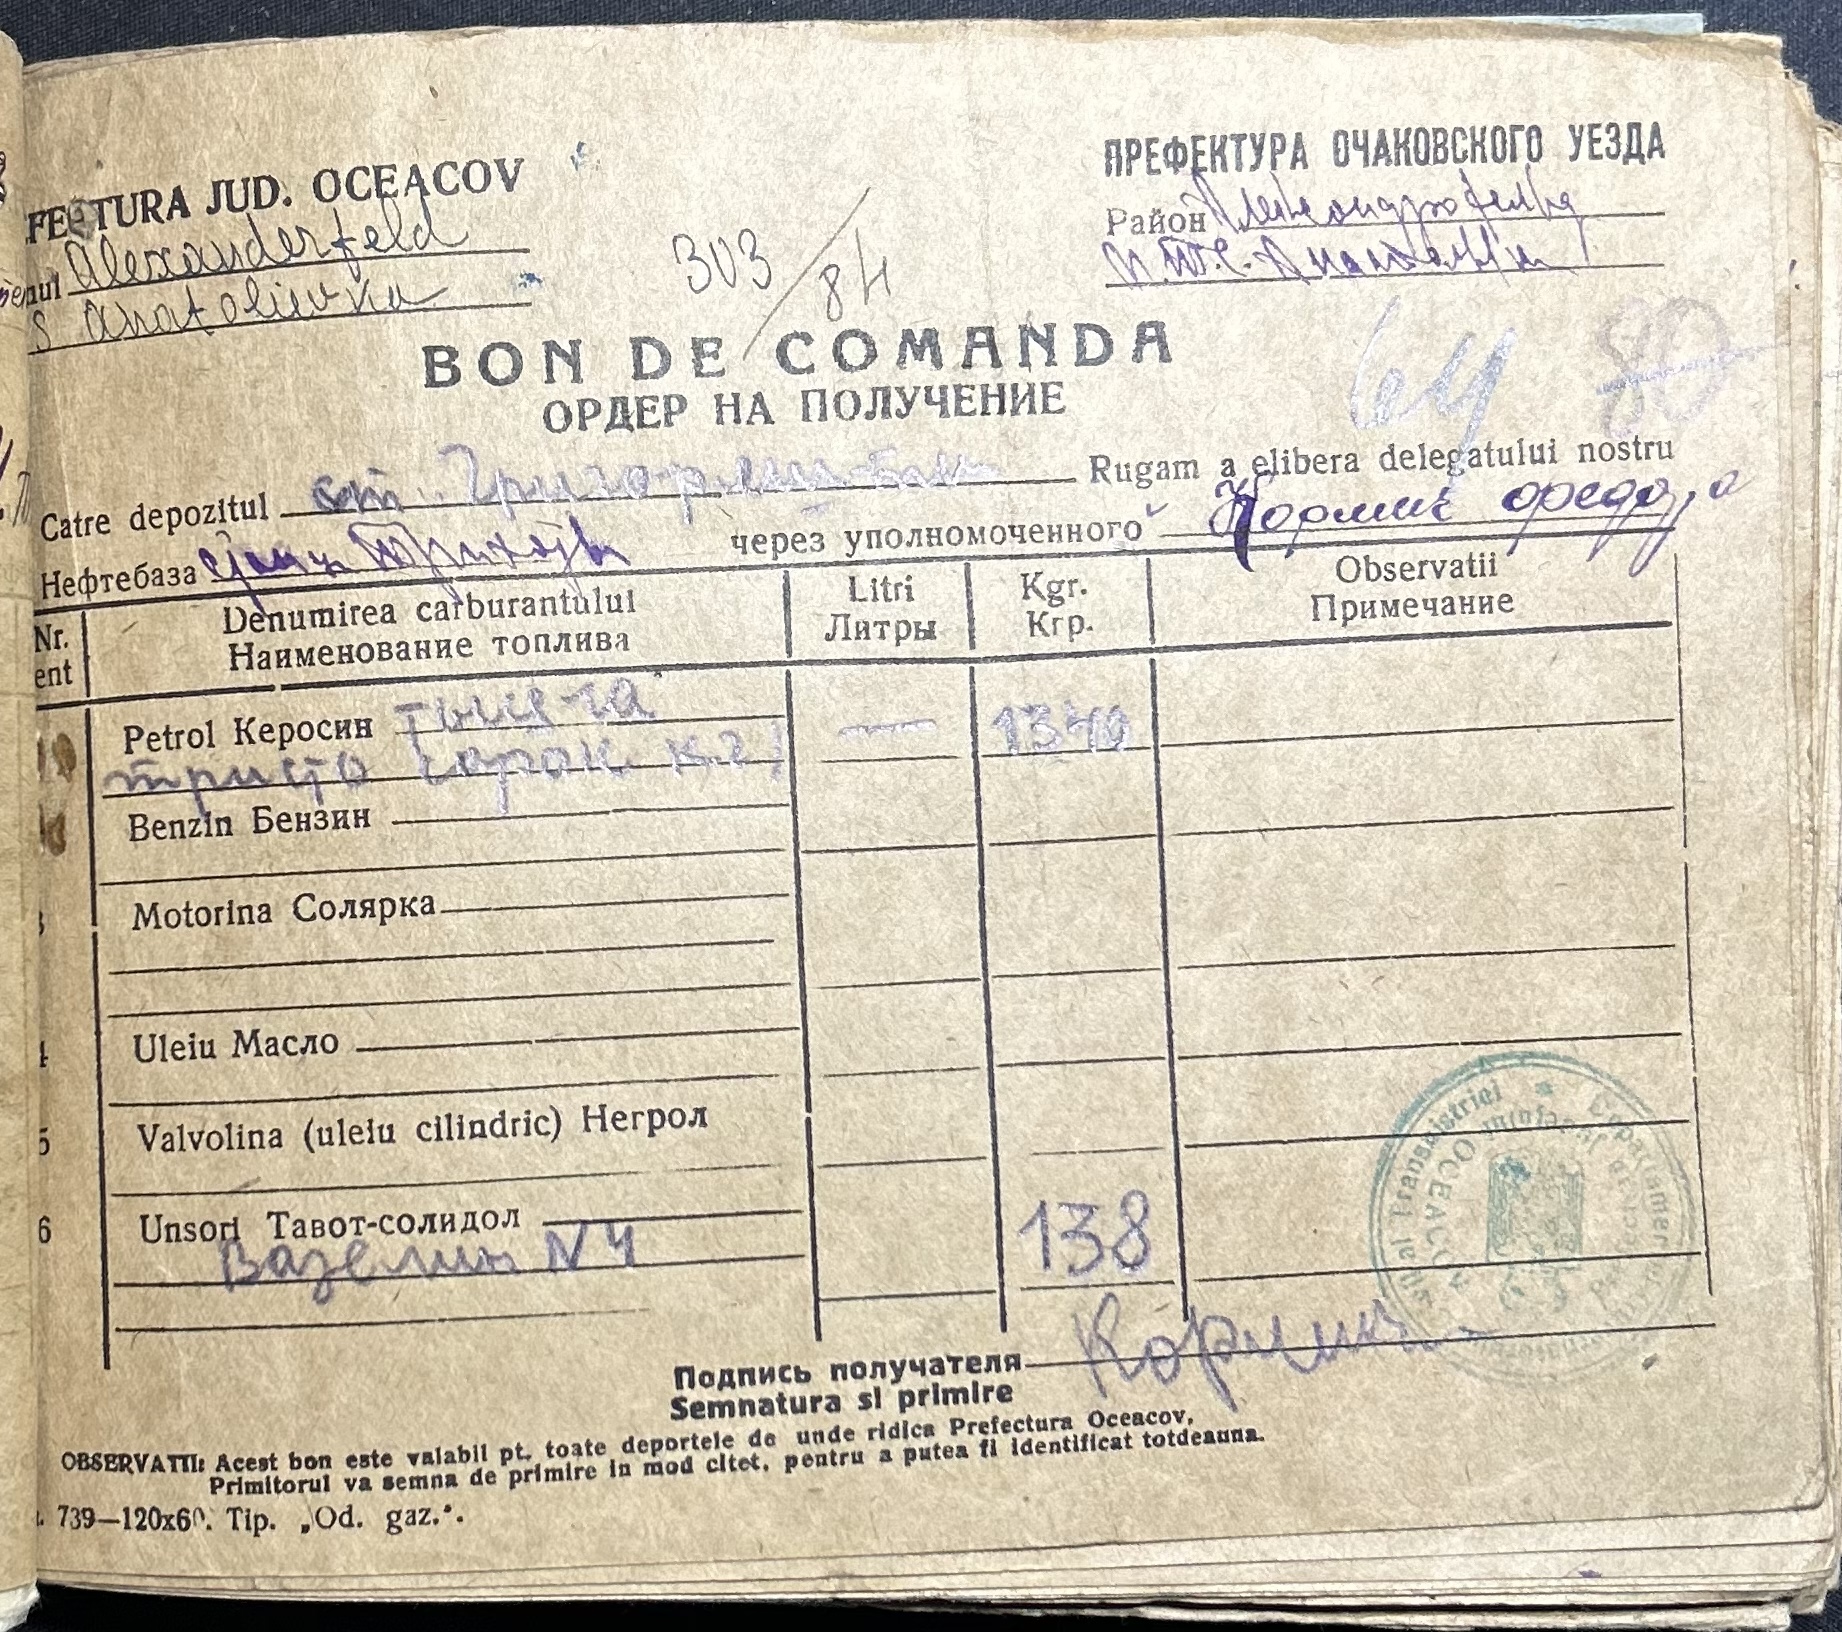 FECTURA JUD. OCEACOV
Alexanderfeld
S Anatolievka
303/84
ПРЕФЕКТУРА ОЧАКОВСКОГО УЕЗДА
Район
BON DE COMANDA
ОРДЕР НА ПОЛУЧЕНИЕ
64 80
Catre depozitul ст. Rugam a elibera delegatului nostru
Нефтебаза через уполномоченного
Nr. ent Denumirea carburantului Наименование топлива Litri Литры Kgr. Кгр. Observatii Примечание
Petrol Керосин тысяча — 1340
триста сорок к.г.
Benzin Бензин
Motorina Солярка
Uleiu Масло
5 Valvolina (uleiu cilindric) Негрол
6 Unsori Тавот-солидол
Вазелин N 4 138
Подпись получателя
Semnatura si primire
OBSERVATII: Acest bon este valabil pt. toate deportele de unde ridica Prefectura Oceacov.
Primitorul va semna de primire in mod citet, pentru a putea fi identificat totdeauna.
739—120x60. Tip. „Od. gaz.".
Transnistriei
OCEACOV